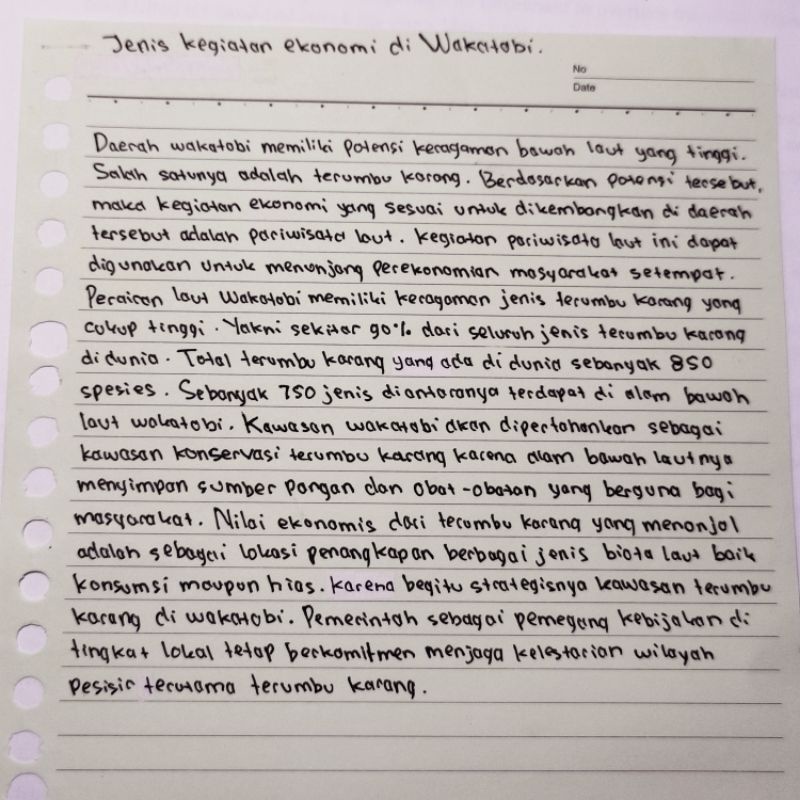 Jenis kegiatan ekonomi di Wakatobi.
No
Date
Daerah wakatobi memiliki potensi keragaman bawah laut yang tinggi.
Salah satunya adalah terumbu karang. Berdasarkan potensi tersebut,
maka kegiatan ekonomi yang sesuai untuk dikembangkan di daerah
tersebut adalah pariwisata laut. kegiatan pariwisata laut ini dapat
digunakan untuk menunjang perekonomian masyarakat setempat.
Perairan laut Wakatobi memiliki keragaman jenis terumbu karang yang
cukup tinggi. Yakni sekitar 90% dari seluruh jenis terumbu karang
di dunia. Total terumbu karang yang ada di dunia sebanyak 850
spesies. Sebanyak 750 jenis diantaranya terdapat di alam bawah
laut wakatobi. Kawasan wakatobi akan dipertahankan sebagai
kawasan konservasi terumbu karang karena alam bawah lautnya
menyimpan sumber pangan dan obat-obatan yang berguna bagi
masyarakat. Nilai ekonomis dari terumbu karang yang menonjol
adalah sebagai lokasi penangkapan berbagai jenis biota laut baik
konsumsi maupun hias. karena begitu strategisnya kawasan terumbu
karang di wakatobi. Pemerintah sebagai pemegang kebijakan di
tingkat lokal tetap berkomitmen menjaga kelestarian wilayah
pesisir terutama terumbu karang.